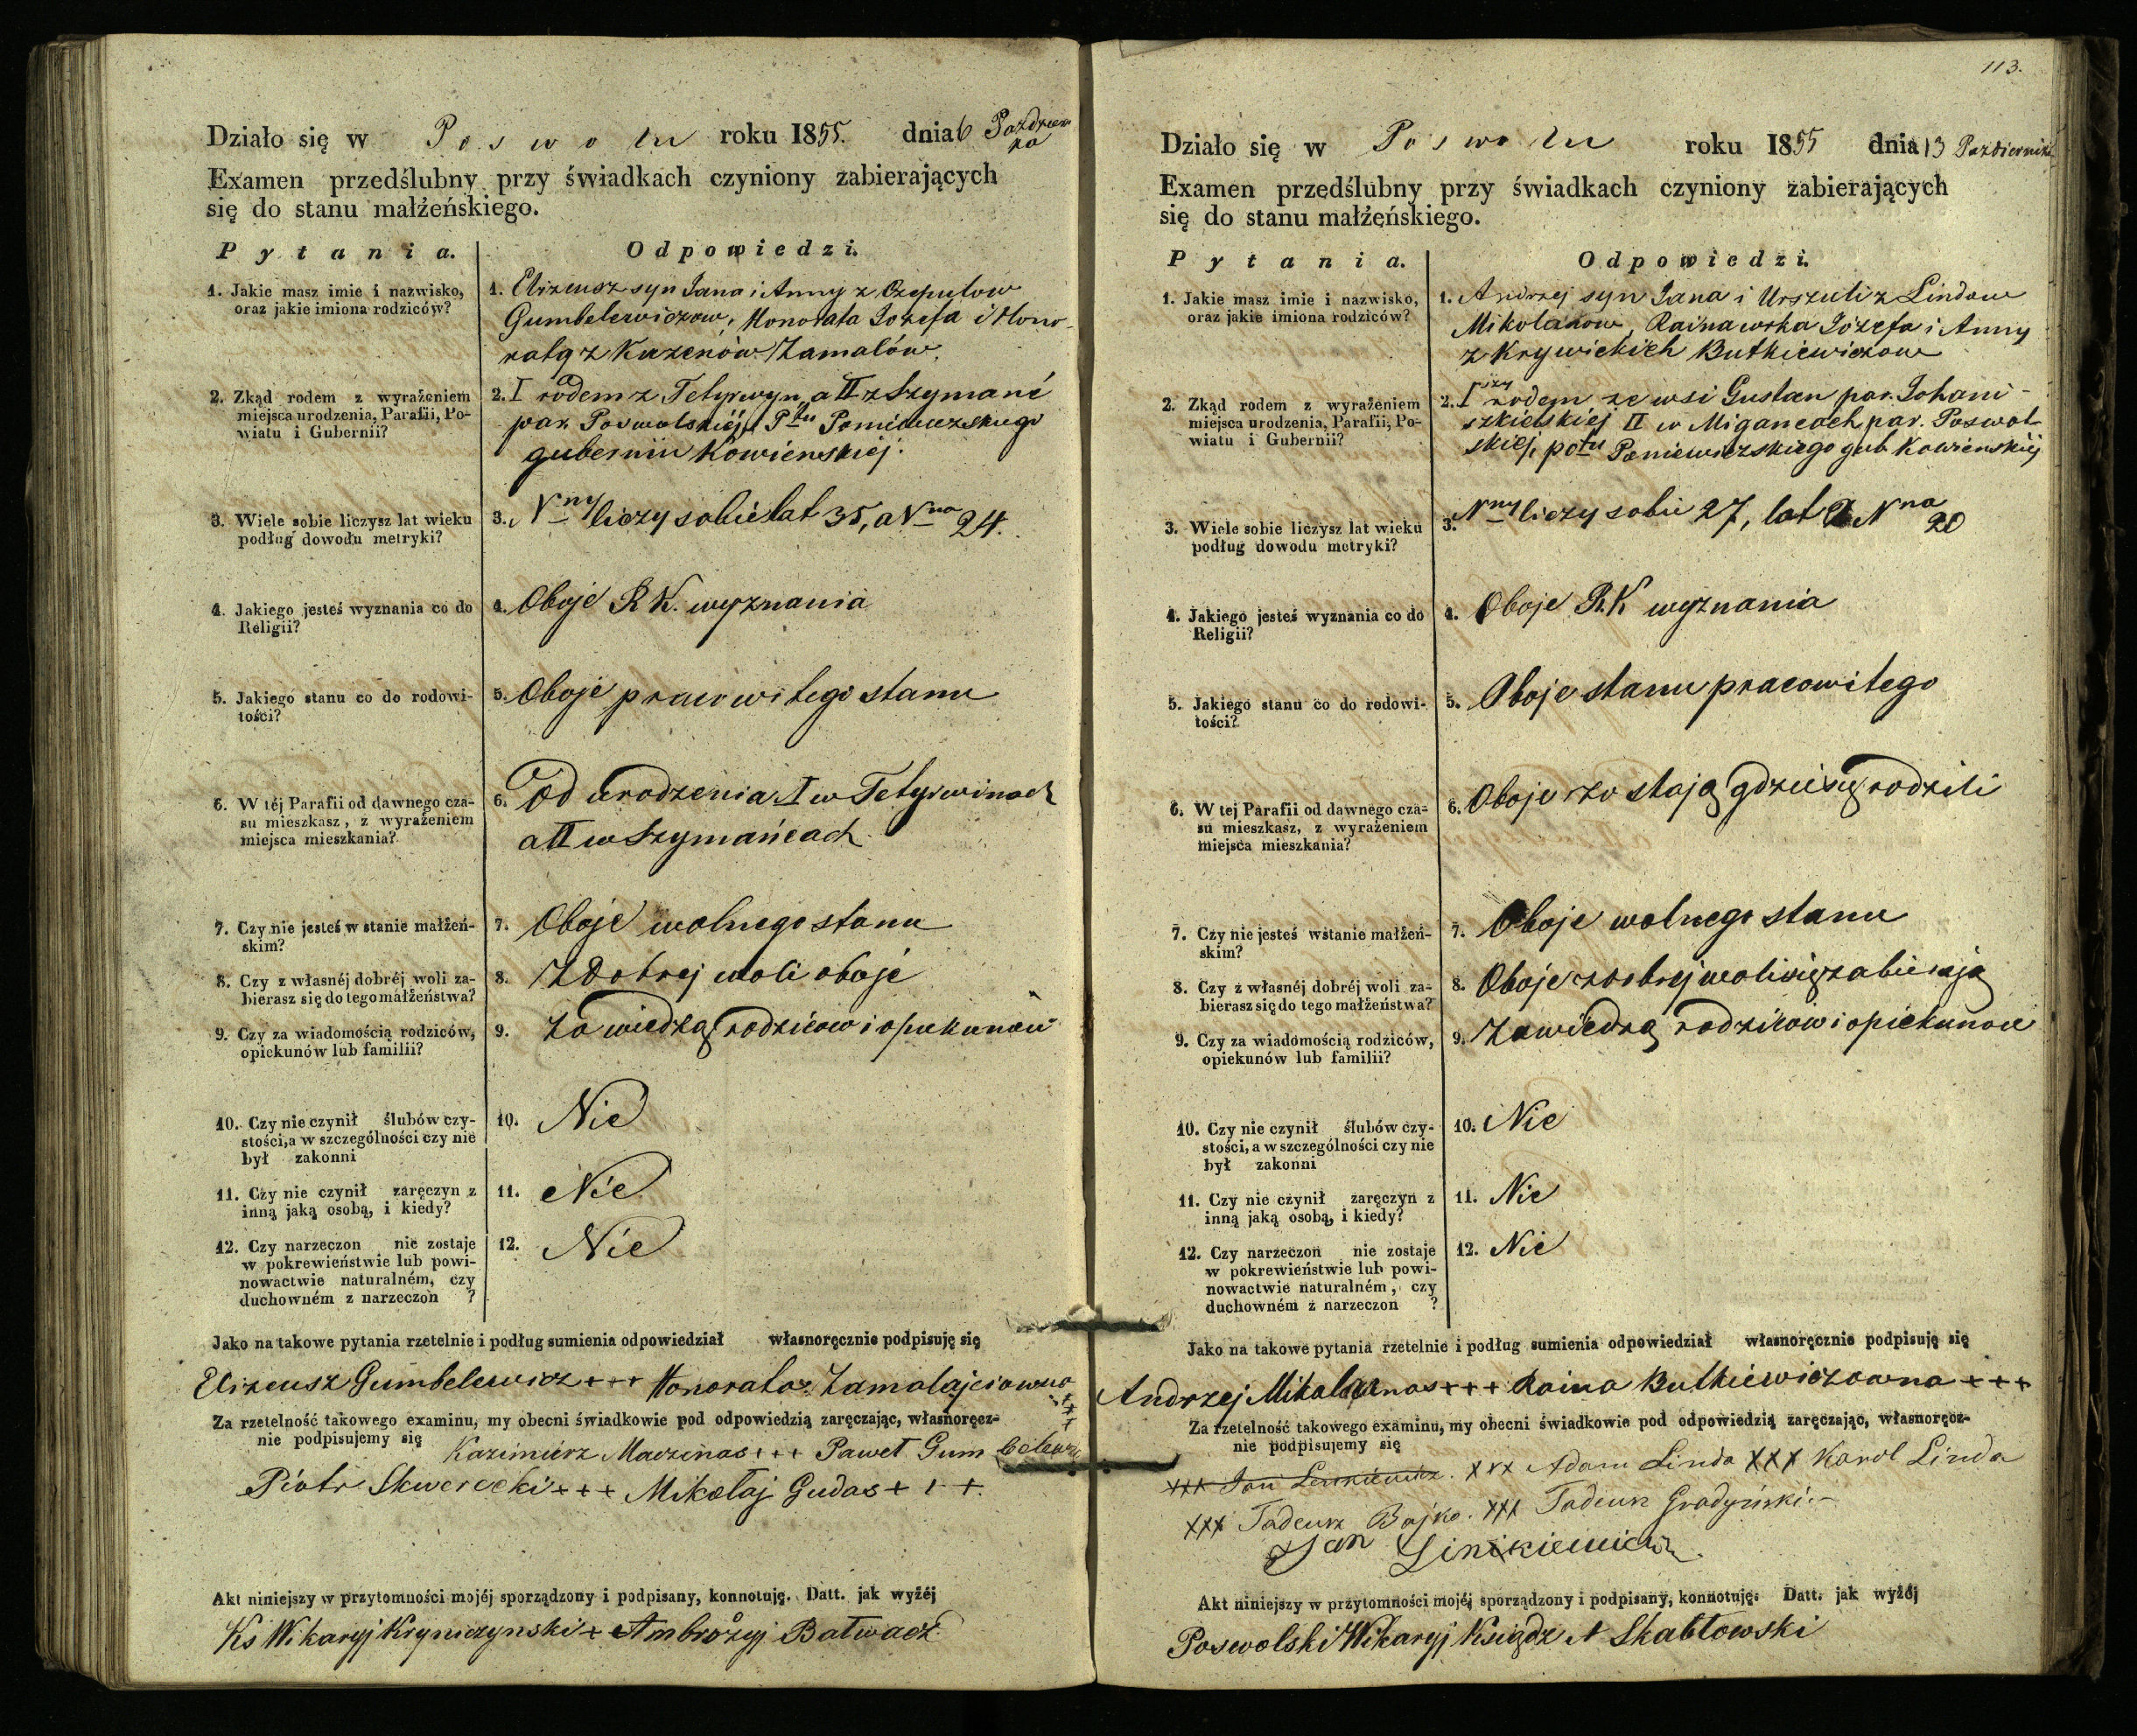 Działo się w Poswolu roku 1855. dnia 6 Paździer
ka
Examen przedślubny przy świadkach czyniony zabierających
się do stanu małżeńskiego.
Pytania. Odpowiedzi.
1. Jakie masz imie i nazwisko,
oraz jakie imiona rodziców?
1. Elizeusz syn Jana i Anny z Czepulow
Gumbelewiczow, Honorata Jozefa i Hono-
raty z Kuzenów Zamalów.
2. Zkąd rodem z wyrażeniem
miejsca urodzenia, Parafii, Po-
wiatu i Gubernii?
2. I rodem z Tetyrwyn a II z Szymanć
par. Poswolskiéj Ptu Poniewieżskiego
gubernii Kowieńskiéj.
3. Wiele sobie liczysz lat wieku
podług dowodu metryki?
3. Nny liczy sobie lat 35, a Nna 24.
4. Jakiego jesteś wyznania co do
Religii?
4. Oboje R K. wyznania
5. Jakiego stanu co do rodowi-
tości?
5. Oboje pracowitego stanu
6. W téj Parafii od dawnego cza-
su mieszkasz, z wyrażeniem
miejsca mieszkania?
6. Od urodzenia I w Tetyrwinach
a II w Szymańcach
7. Czy nie jesteś w stanie małżeń-
skim?
7. Oboje wolnego stanu
8. Czy z własnéj dobréj woli za-
bierasz się do tego małżeństwa?
8. Z dobrej woli oboje
9. Czy za wiadomością rodziców,
opiekunów lub familii?
9. Za wiedzą rodzicow i opiekunow
10. Czy nie czynił ślubów czy-
stości, a w szczególności czy nie
był zakonni
10. Nie
11. Czy nie czynił zaręczyn z
inną jaką osobą, i kiedy?
11. Nie
12. Czy narzeczon nie zostaje
w pokrewieństwie lub powi-
nowactwie naturalném, czy
duchowném z narzeczon ?
12. Nie
Jako na takowe pytania rzetelnie i podług sumienia odpowiedział własnoręcznie podpisuję się
Elizeusz Gumbelewicz +++ Honorata Zamalajciowna
+++
Za rzetelność takowego examinu, my obecni świadkowie pod odpowiedzią zaręczając, własnoręcz-
nie podpisujemy się Kazimierz Maczenas +++ Paweł Gumbelewicz
Piotr Skwerecki +++ Mikołaj Gudas +++
Akt niniejszy w przytomności mojéj sporządzony i podpisany, konnotuję. Datt. jak wyżéj
Ks Wikaryj Kryniczynski + Ambrożyj Batwacz
113.
Działo się w Poswolu roku 1855 dnia 13 Październik
Examen przedślubny przy świadkach czyniony zabierających
się do stanu małżeńskiego.
Pytania. Odpowiedzi.
1. Jakie masz imie i nazwisko,
oraz jakie imiona rodziców?
1. Andrzej syn Jana i Urszuli z Lindow
Mikolanow, Rainawska Józefa i Anny
z Krywickich Butkiewiczow
2. Zkąd rodem z wyrażeniem
miejsca urodzenia, Parafii, Po-
wiatu i Gubernii?
2. Iszy rodem ze wsi Gustan par. Johani-
szkielskiéj II w Migancach par. Poswol-
skiej, potu Poniewieżskiego gub Kowieńskiéj
3. Wiele sobie liczysz lat wieku
podług dowodu metryki?
3. Nny liczy sobie 27, lat a Nna 20
4. Jakiego jesteś wyznania co do
Religii?
4. Oboje R.K wyznania
5. Jakiego stanu co do rodowi-
tości?
5. Oboje stanu pracowitego
6. W tej Parafii od dawnego cza-
su mieszkasz, z wyrażeniem
miejsca mieszkania?
6. Oboje zostają gdzie się rodzili
7. Czy nie jesteś wstanie małżeń-
skim?
7. Oboje wolnego stanu
8. Czy z własnéj dobréj woli za-
bierasz się do tego małżeństwa?
8. Oboje z dobrej woli się zabierają
9. Czy za wiadomością rodziców,
opiekunów lub familii?
9. Za wiedzą rodzicow i opiekunow
10. Czy nie czynił ślubów czy-
stości, a w szczególności czy nie
był zakonni
10. Nie
11. Czy nie czynił zaręczyn z
inną jaką osobą, i kiedy?
11. Nie
12. Czy narzeczon nie zostaje
w pokrewieństwie lub powi-
nowactwie naturalném, czy
duchowném z narzeczon ?
12. Nie
Jako na takowe pytania rzetelnie i podług sumienia odpowiedział własnoręcznie podpisuję się
Andrzej Mikolanas +++ Raina Butkiewiczowna +++
Za rzetelność takowego examinu, my obecni świadkowie pod odpowiedzią zaręczając, własnoręcz-
nie podpisujemy się
xxx Jan Lenkiewicz. xxx Adam Linda xxx Karol Linda
xxx Tadeusz Bojko. xxx Tadeusz Gradyński.
Jan Linkiewicz
Akt niniejszy w przytomności mojéj sporządzony i podpisany, konnotuję. Datt. jak wyżéj
Poswolski Wikaryj Ksiądz A Skabłowski